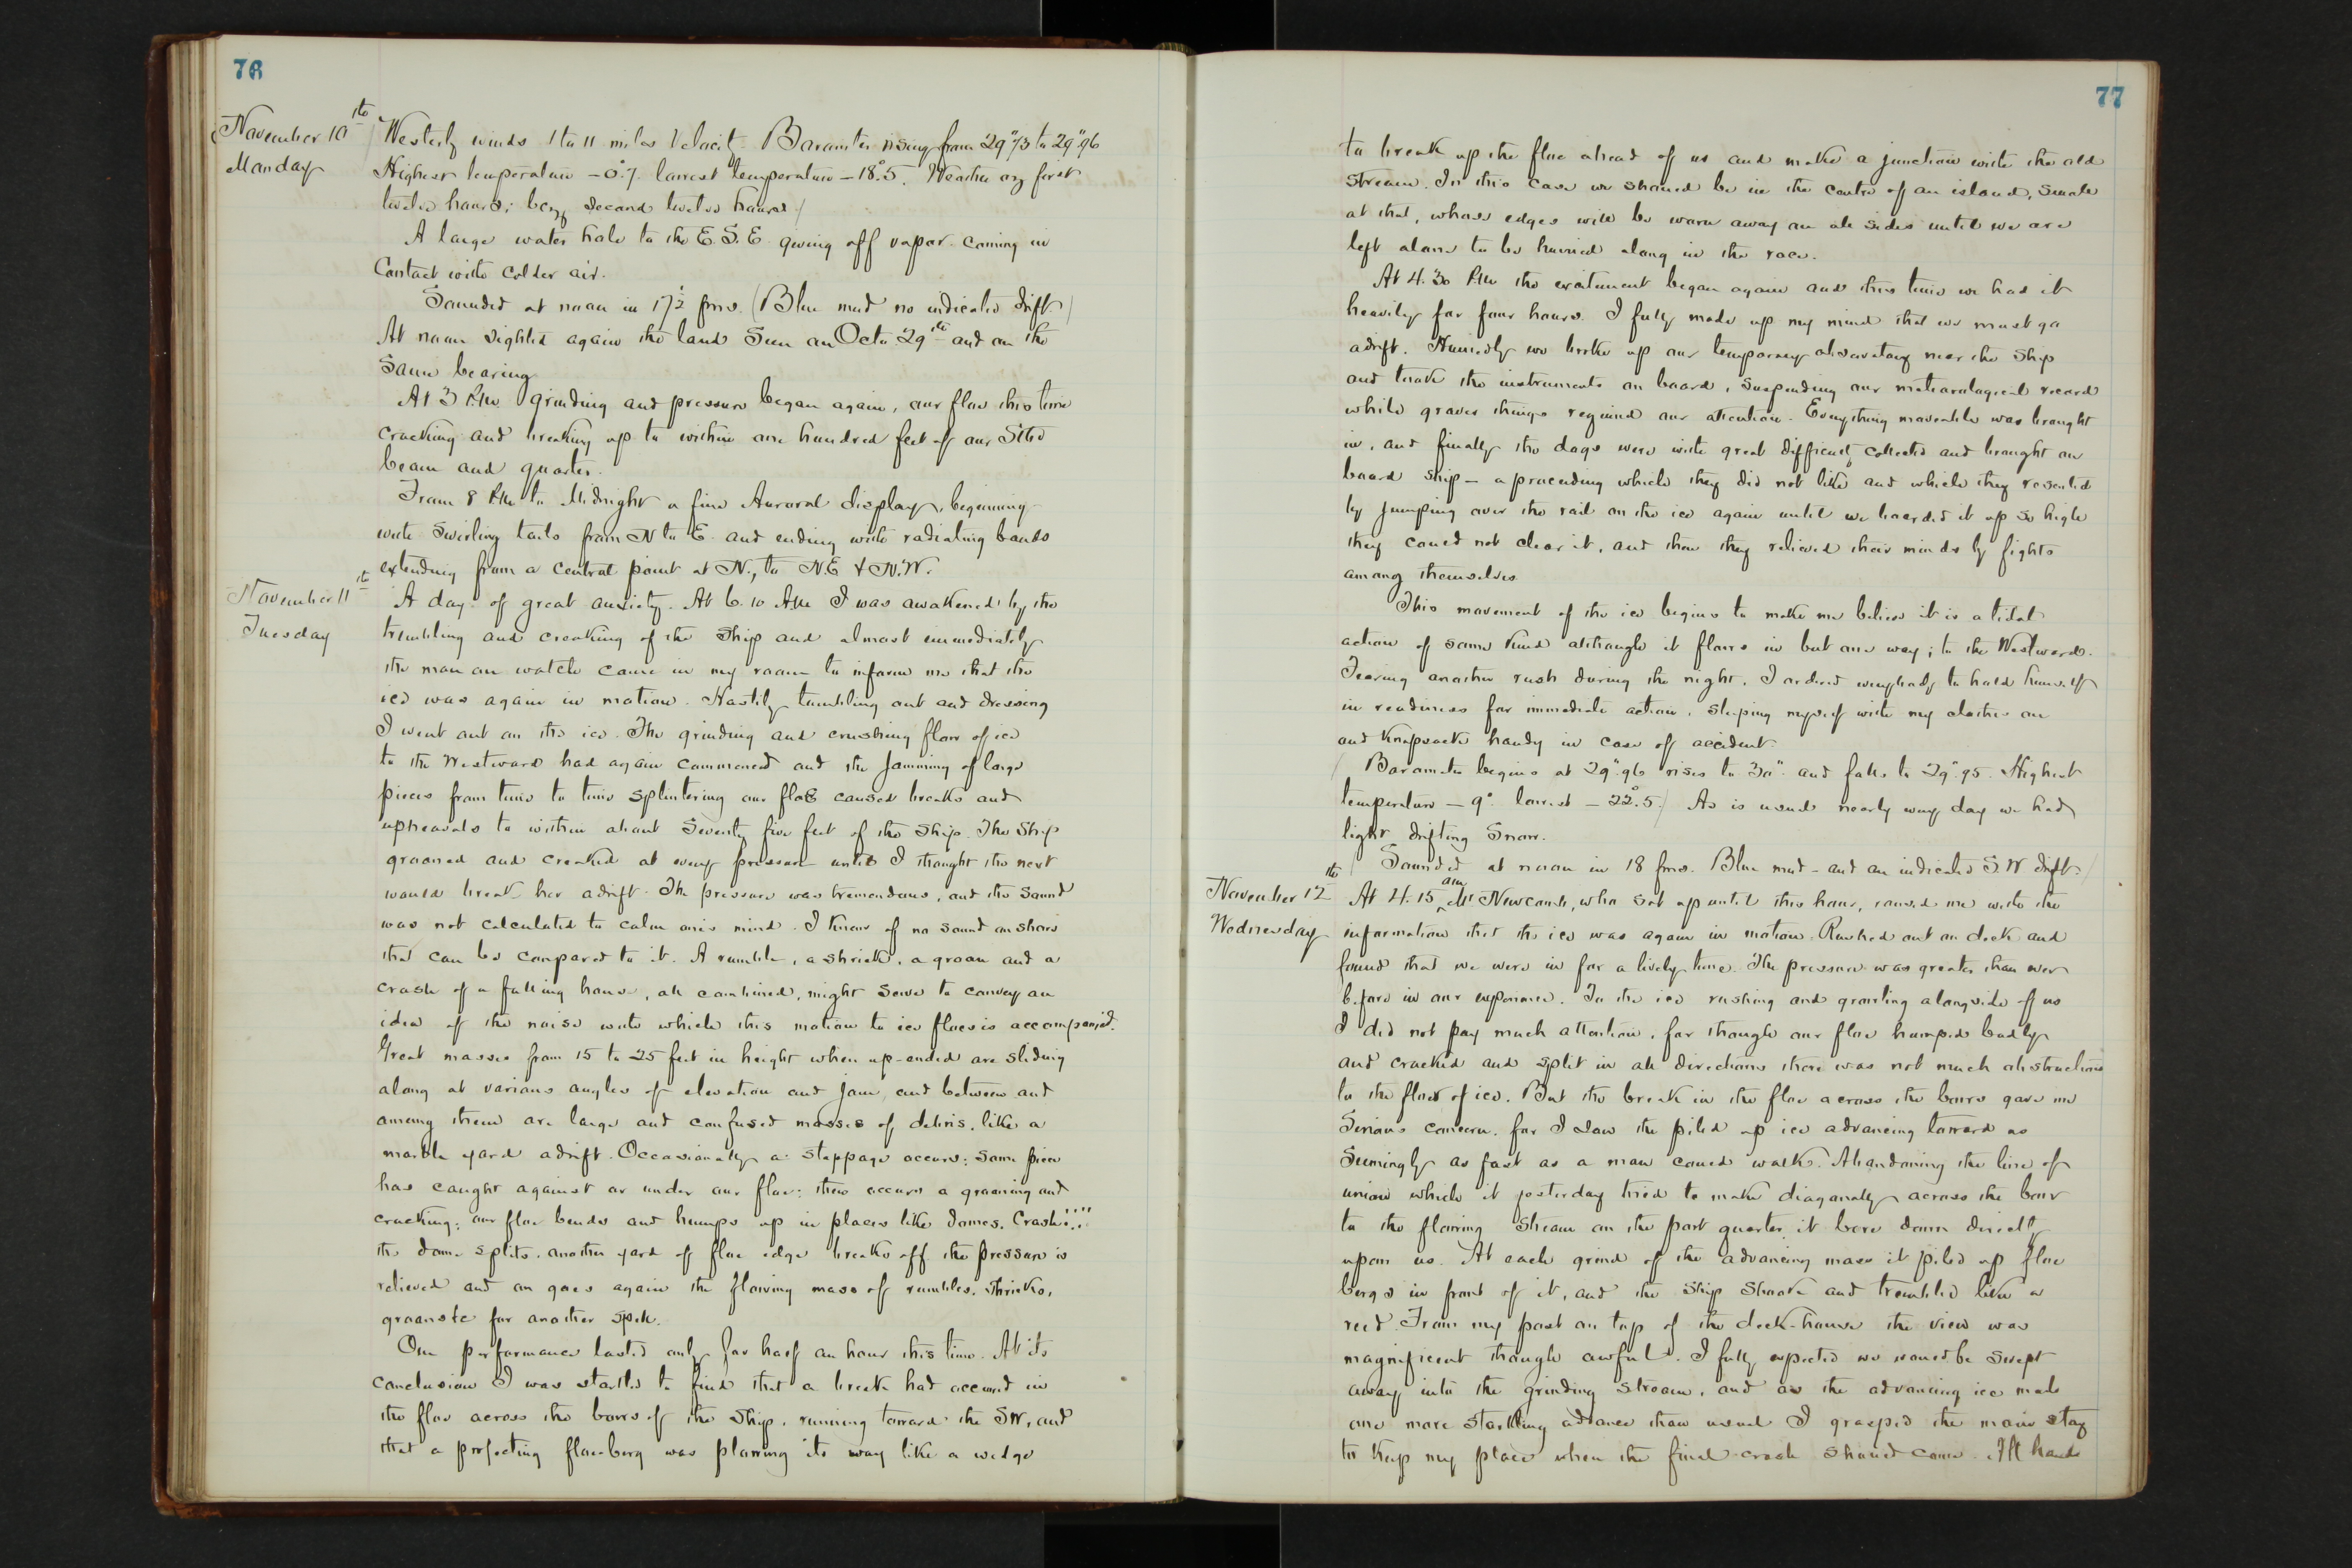 76
November 10th
Monday
Westerly winds 1 to 11 miles Velocity. Barometer rising from 29"73 to 29"96
Highest temperature – 0°.7. lowest temperature – 18°.5. Weather ozg first
twelve hours; bczg second twelve hours.)
A large water hole to the E.S.E. giving off vapor coming in
Contact with colder air.
Sounded at noon in 17½ fms. (Blue mud no indicated drift.)
At noon sighted again the land seen on Octo. 29th and on the
Same bearing
At 3 P.M. grinding and pressure began again, our floe this time
cracking and breaking up to within one hundred feet of our Stbd
beam and quarter.
From 8 P.M. to Midnight a fine Auroral display, beginning
with swirling tails from N to E. and ending with radiating bands
extending from a central point at N., to N.E. & N.W.
November 11th
Tuesday
A day of great anxiety. At 6.10 A.M. I was awakened by the
trembling and creaking of the Ship and almost immediately
the man on watch came in my room to inform me that the
ice was again in motion. Hastily tumbling out and dressing
I went out on the ice. The grinding and crushing flow of ice
to the Westward had again commenced and the jamming of large
pieces from time to time splintering our floe caused breaks and
upheavals to within about Seventy five feet of the Ship. The Ship
groaned and creaked at every pressure until I thought the next
would break her adrift. The pressure was tremendous, and the sound
was not calculated to calm one's mind. I know of no sound on shore
that can be compared to it. A rumble, a shriek, a groan and a
crash of a falling house, all combined, might serve to convey an
idea of the noise with which this motion to ice floes is accompanied.
Great masses from 15 to 25 feet in height when up-ended are sliding
along at various angles of elevation and jam, and between and
among them are large and confused masses of debris, like a
marble yard adrift. Occasionally a stoppage occurs; some piece
has caught against or under our floe; then occurs a groaning and
cracking; our floe bends and humps up in places like domes. Crash!!!!
the dome splits, another yard of floe edge breaks off, the pressure is
relieved and on goes again the flowing mass of rumbles, shrieks,
groans &c for another spell.
Our performance lasted only for half an hour this time. At its
conclusion I was startled to find that a break had occurred in
the floe across the bows of the Ship, running toward the SW, and
that a projecting floeberg was plowing its way like a wedge
77
to break up the floe ahead of us and make a junction with the old
stream. In this case we should be in the centre of an island, small
at that, whose edges will be worn away on all sides until we are
left alone to be hurried along in the race.
At 4.30 P.M. the excitement began again and this time we had it
heavily for four hours. I fully made up my mind that we must go
adrift. Hurriedly we broke up our temporary observatory near the Ship
and took the instruments on board, suspending our meteorological record
while graver things required our attention. Everything moveable was brought
in, and finally the dogs were with great difficulty collected and brought on
board ship – a proceeding which they did not like and which they resented
by jumping over the rail on the ice again until we boarded it up so high
they could not clear it, and then they relieved their minds by fights
among themselves
This movement of the ice begins to make me believe it is a tidal
action of some kind although it flows in but one way; to the Westward.
Fearing another rush during the night, I ordered everybody to hold himself
in readiness for immediate action, sleeping myself with my clothes on
and knapsack handy in case of accident.
(Barometer begins at 29"96 rises to 30" and falls to 29".95. Highest
temperature – 9°. lowest – 22°.5.) As is usual nearly every day we had
light drifting Snow.
(Sounded at noon in 18 fms. Blue mud – and an indicated S.W drift.)
November 12th
Wednesday
At 4.15 am Mr Newcomb, who sat up until this hour, roused me with the
information that the ice was again in motion. Rushed out on deck and
found that we were in for a lively time. The pressure was greater than ever
before in our experience. To the ice rushing and growling alongside of us
I did not pay much attention, for though our floe humped badly
and cracked and split in all directions there was not much obstruction
to the flow of ice. But the break in the floe across the bows gave me
Serious concern, for I saw the piled up ice advancing toward us
Seemingly as fast as a man could walk. Abandoning the line of
union which it yesterday tried to make diagonally across the bow
to the flowing stream on the port quarter, it bore down directly
upon us. At each grind of the advancing mass it piled up floe
bergs in front of it, and the ship shook and trembled like a
reed. From my post on top of the deck-house the view was
magnificent though awful. I fully expected we would be swept
away into the grinding stream, and as the advancing ice made
one more startling advance than usual I grasped the main stay
to keep my place when the final crash should come. All hands